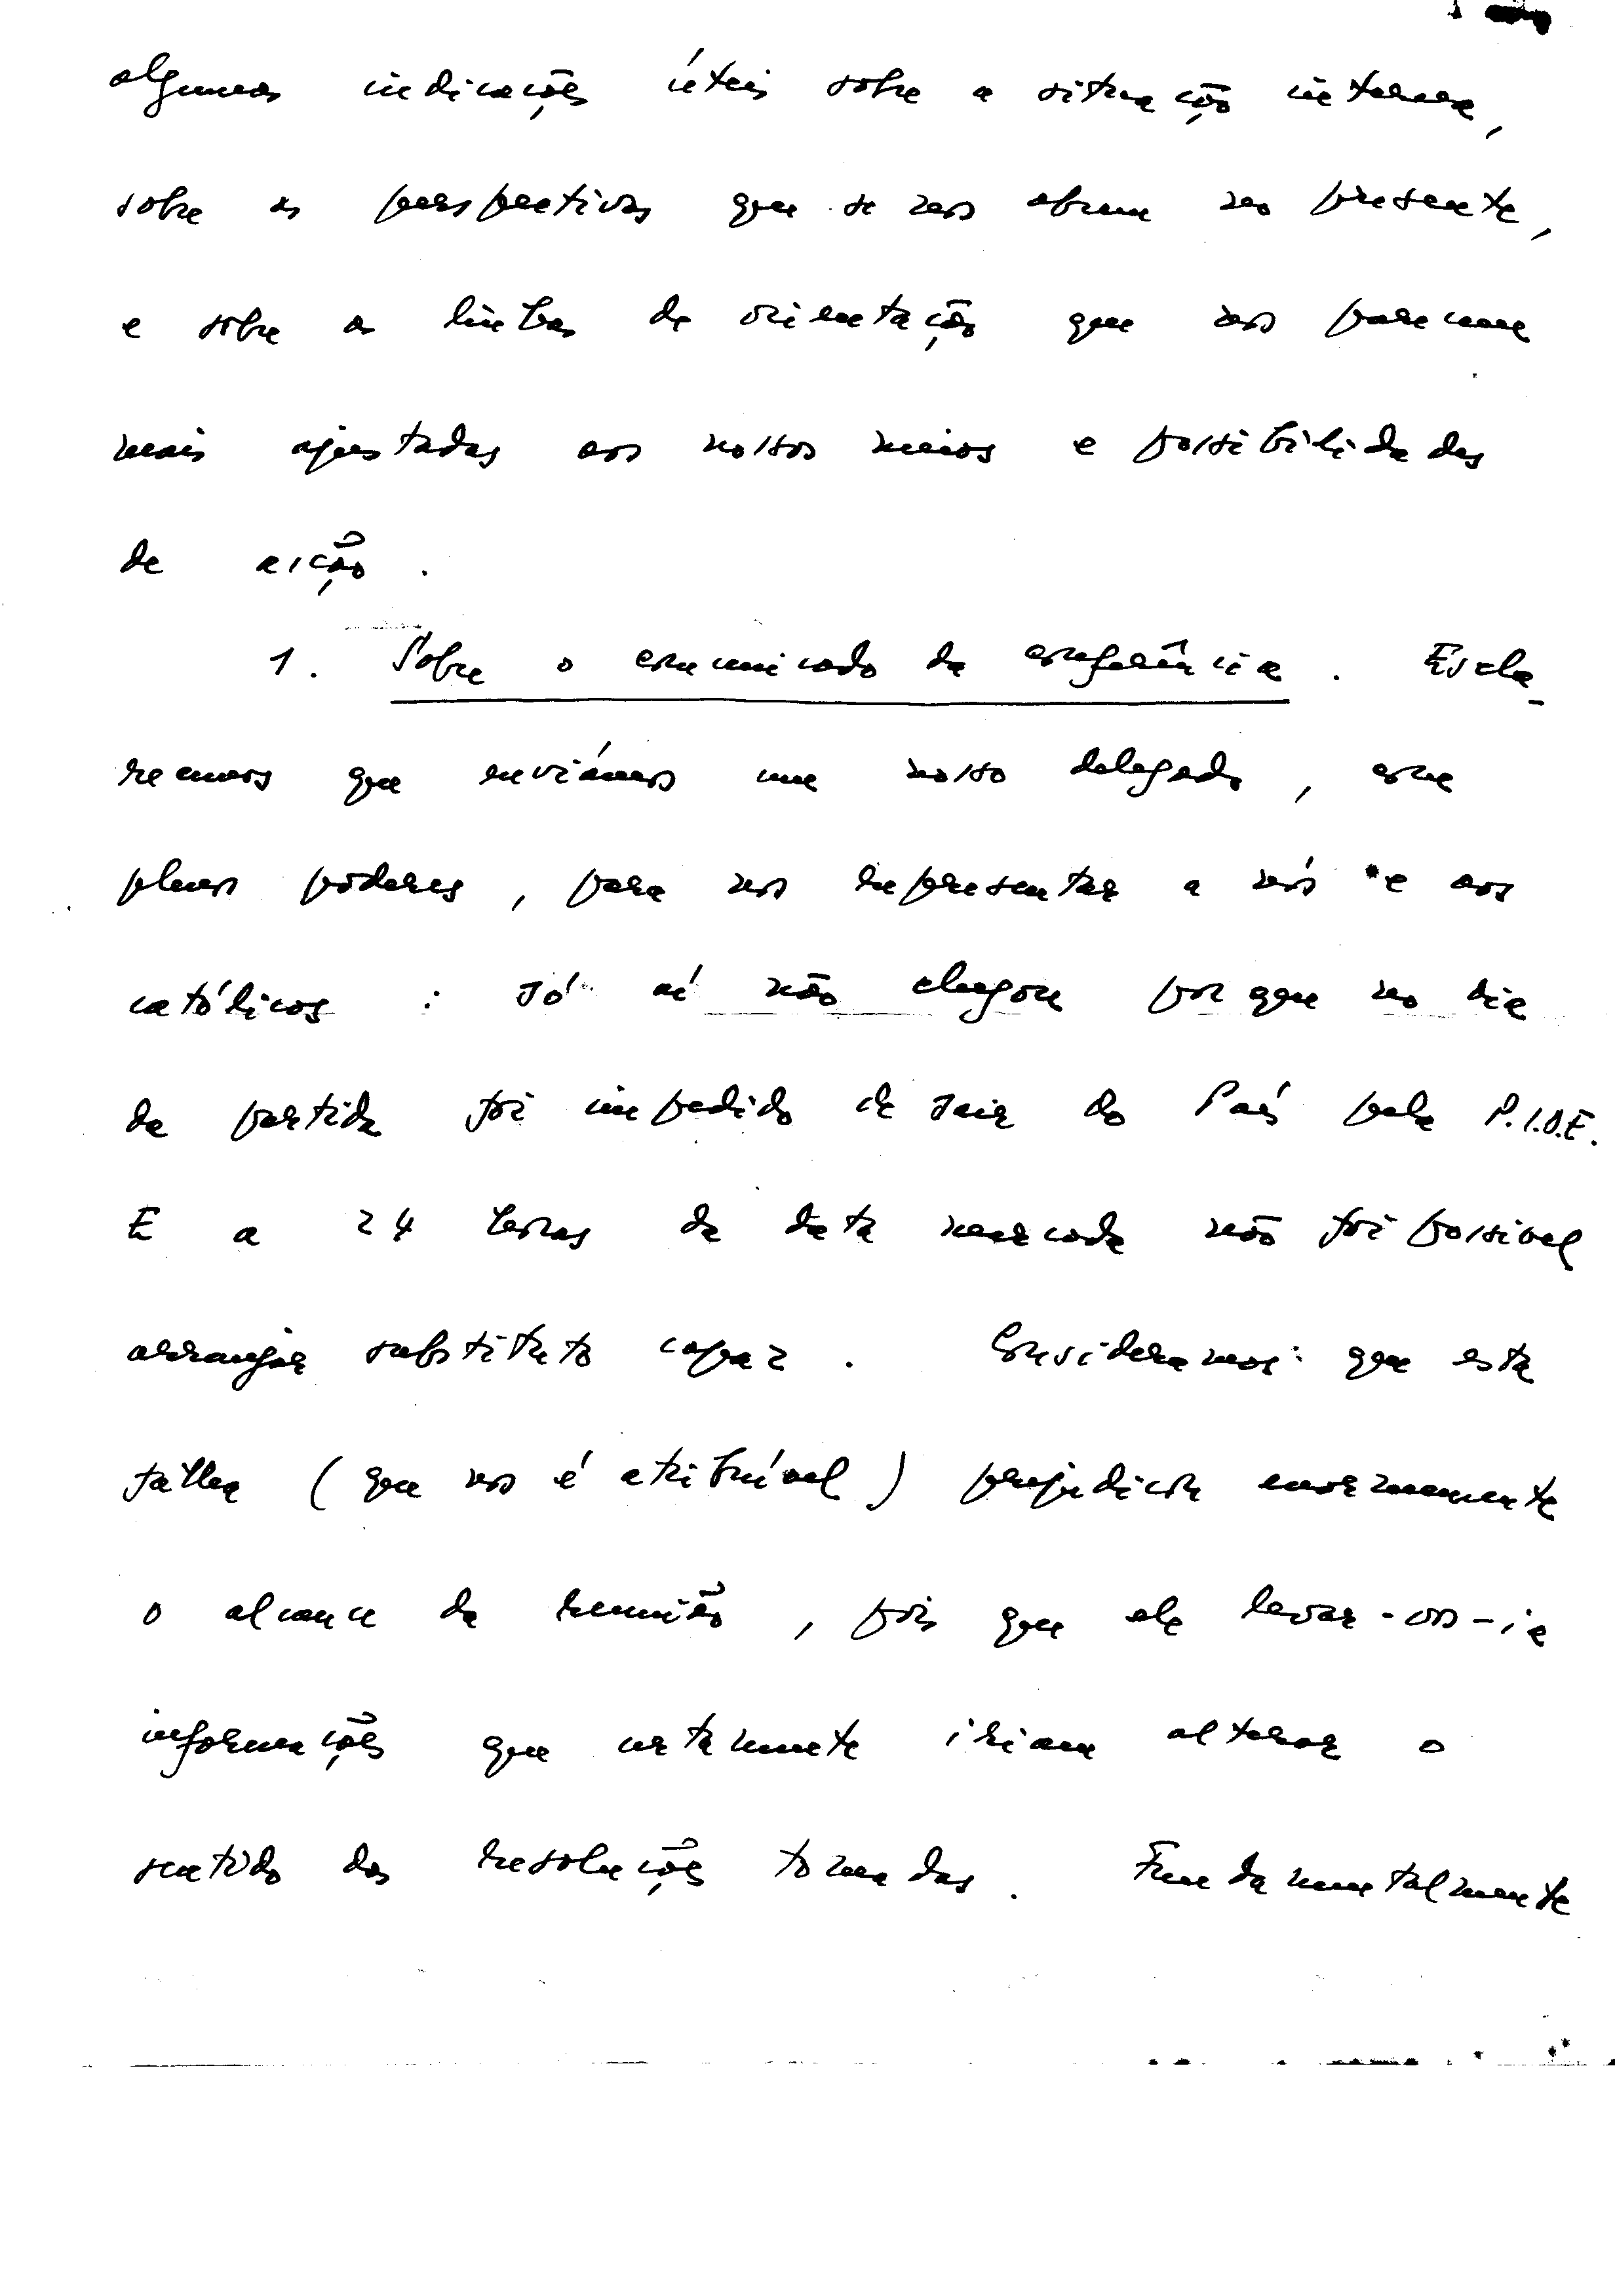 algumas indicações úteis sobre a situação interna,
sobre as perspectivas que se nos abrem no presente,
e sobre as linhas de orientação que nos parecem
mais ajustadas aos nossos meios e possibilidades
de acção.
1. Sobre o comunicado da conferência. Escla-
recemos que enviámos um nosso delegado, com
plenos poderes, para nos representar a nós e aos
católicos: só aí não chegou porque no dia
da partida foi impedido de sair do País pela P.I.D.E.
E a 24 horas da data marcada não foi possível
arranjar substituto capaz. Consideramos que esta
falha (que nos é atribuível) prejudicou enormemente
o alcance da reunião, pois que ele levar-vos-ia
informações que certamente iriam alterar o
sentido das resoluções tomadas. Fundamentalmente